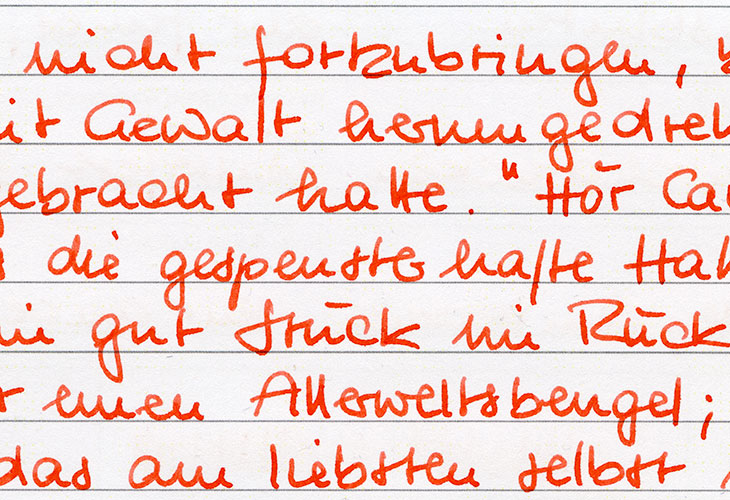 nicht fortzubringen,
mit Gewalt herumgedreh
gebracht hatte. "Hör Ca
die gespensterhafte Hal
gut Stück im Rück
einen Allerweltsbengel;
das am liebsten selbst